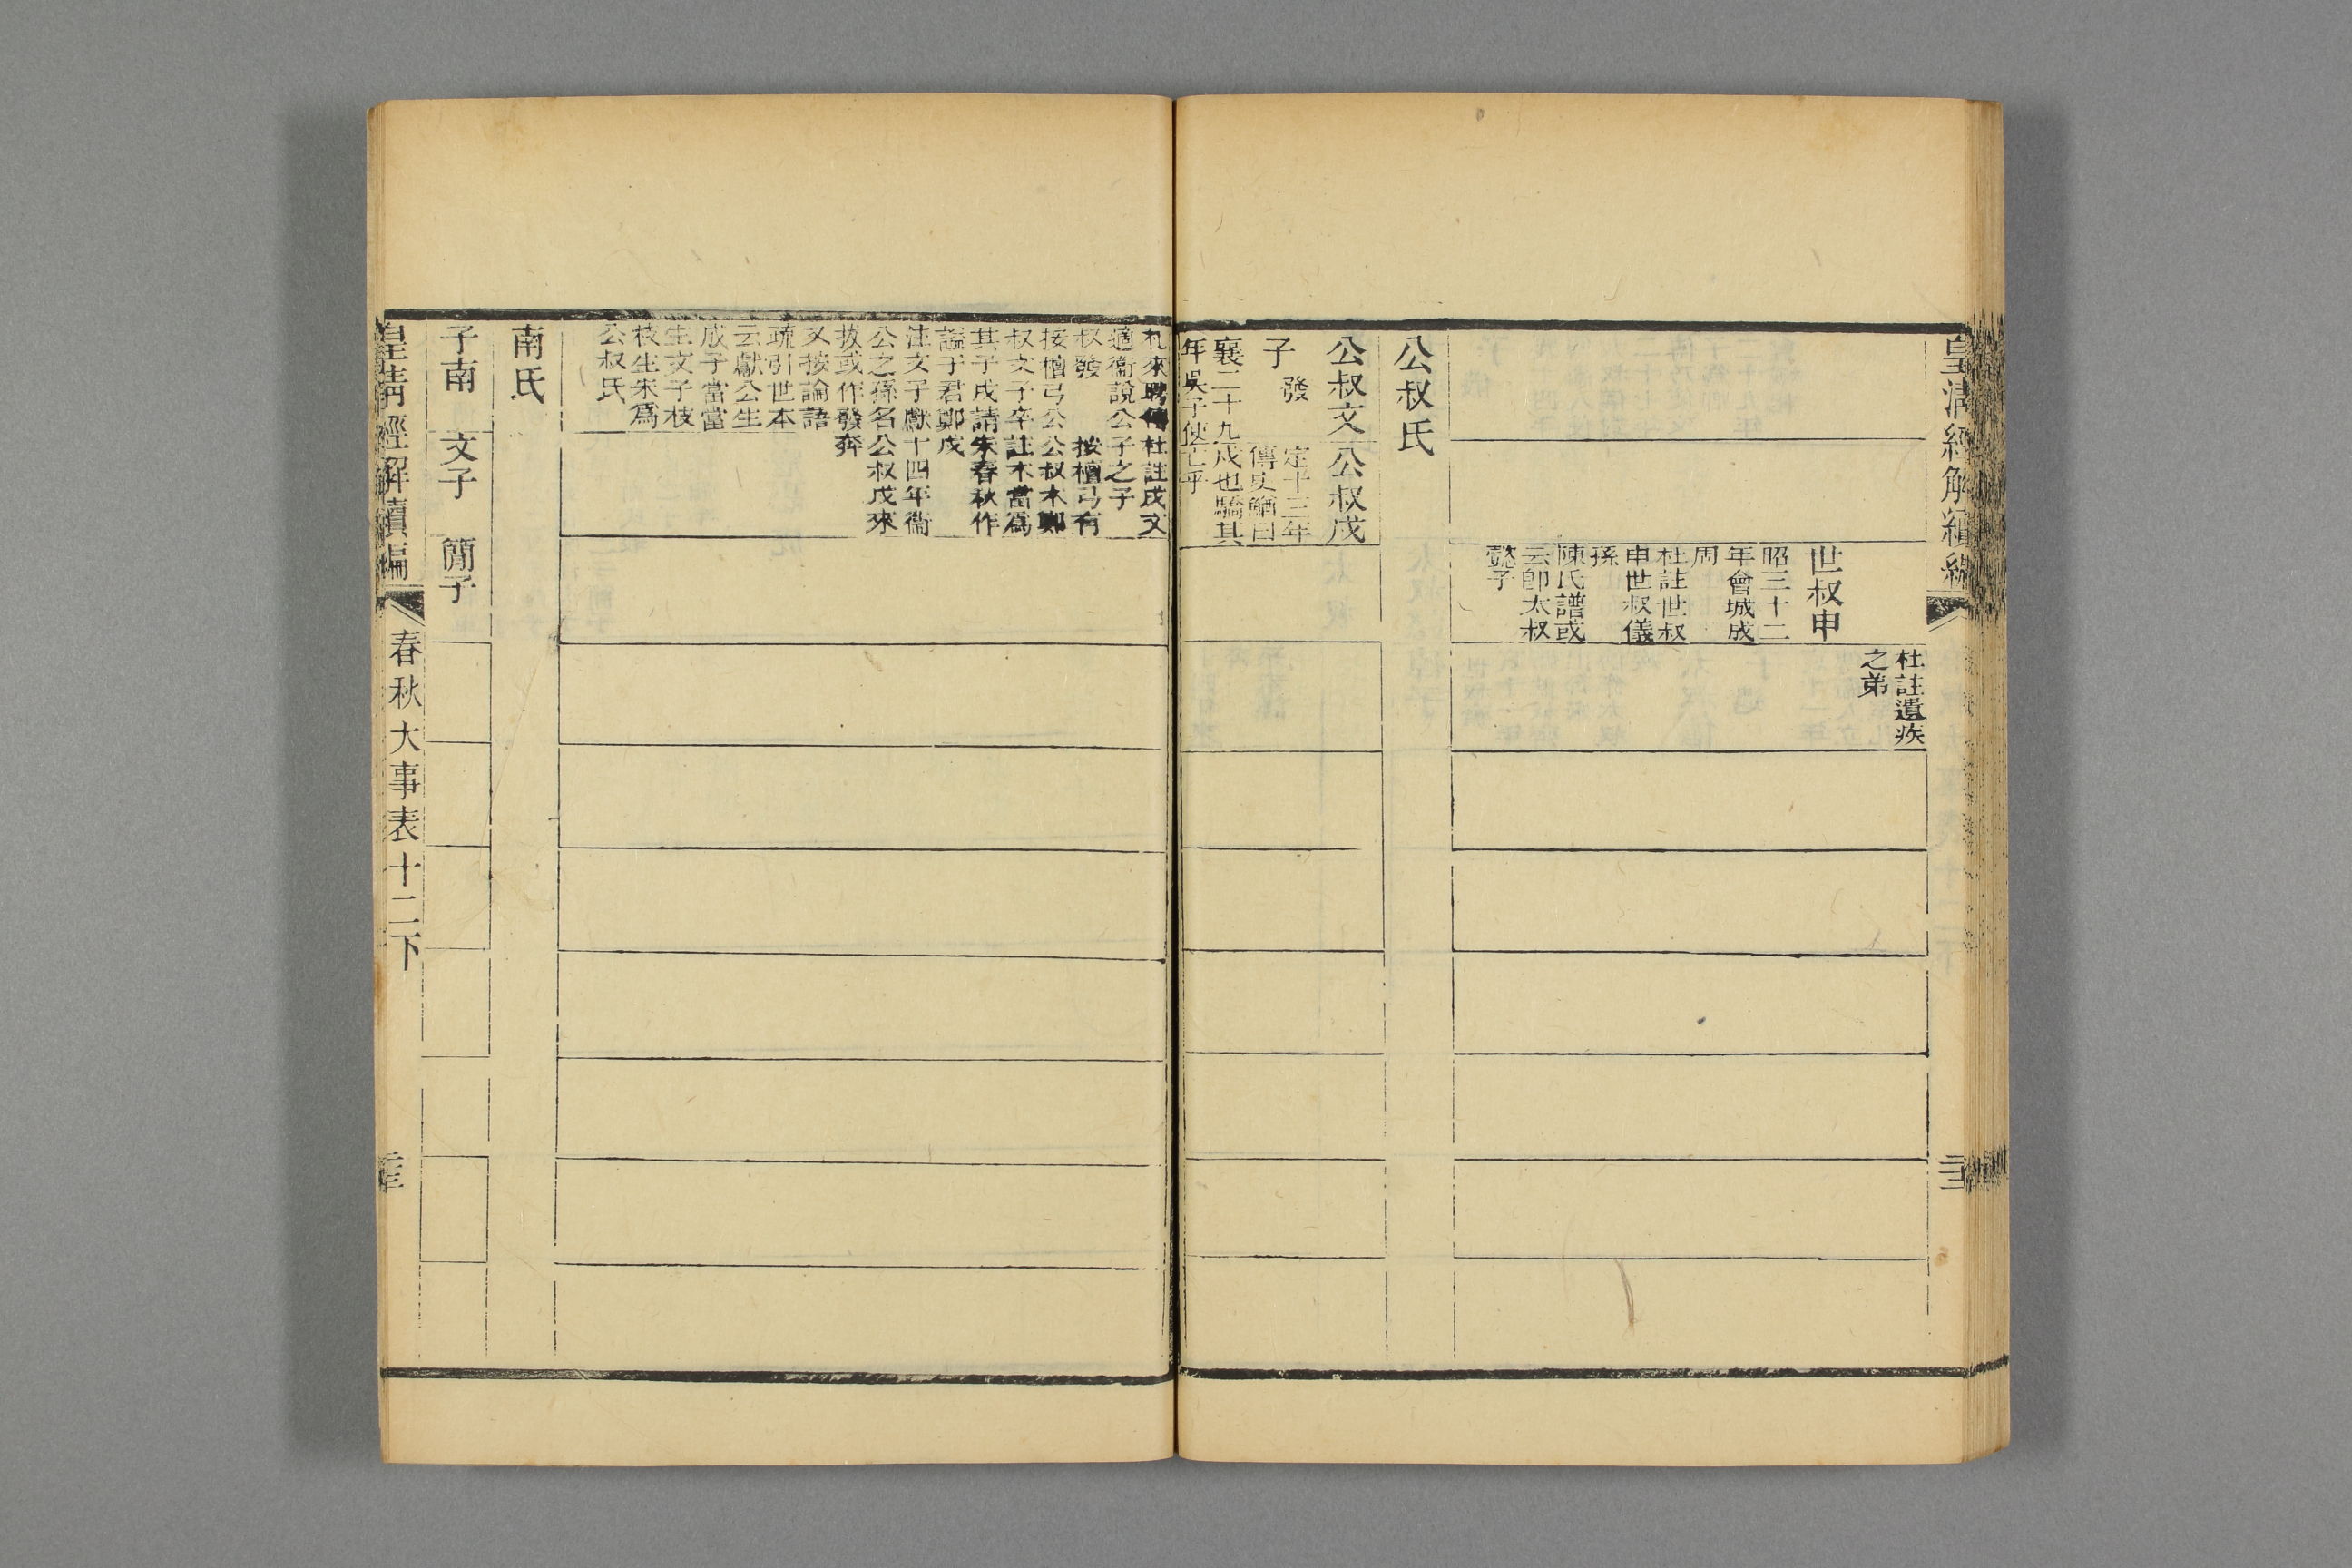 皇清經解續編
杜註遺疾
之弟
世叔申
昭三十二
年會城成
周
杜註世叔
申世叔儀
孫
陳氏譜或
云卽太叔
懿子
公叔氏
公叔文
子 發
襄二十九
年吳子使
札來聘傳
適衞說公
叔發
按檀弓公
叔文子卒
其子戌請
諡于君鄭
注文子獻
公之孫名
拔或作發
又按論語
疏引世本
云獻公生
成子當當
生文子枝
枝生朱爲
公叔氏
公叔戌
定十三年
傳史鰌曰
戌也驕其
亡乎
杜註戌文
子之子
按檀弓有
公叔木鄭
註木當爲
朱春秋作
戌
十四年衞
公叔戌來
奔
南氏
子南
文子
簡子
皇清經解續編
春秋大事表十二下